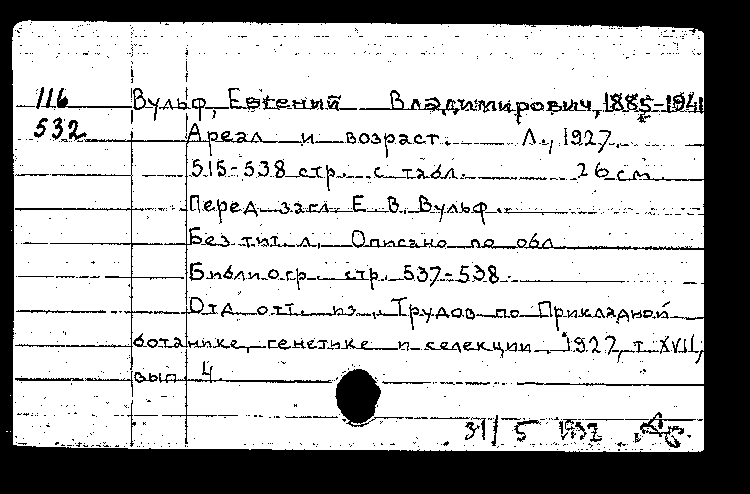 116 Вульф, Евгений Владимирович, 1885-1941
532 Ареал и возраст. Л., 1927.
515-538 стр. с табл. 26 см.
Перед загл. Е. В. Вульф.
Без тит. л. Описано по обл.
Библиогр. стр. 537-538.
Отд. отт. из „Трудов по Прикладной
ботанике, генетике и селекции. 1927, т. XVII,
вып. 4.
31/ 5